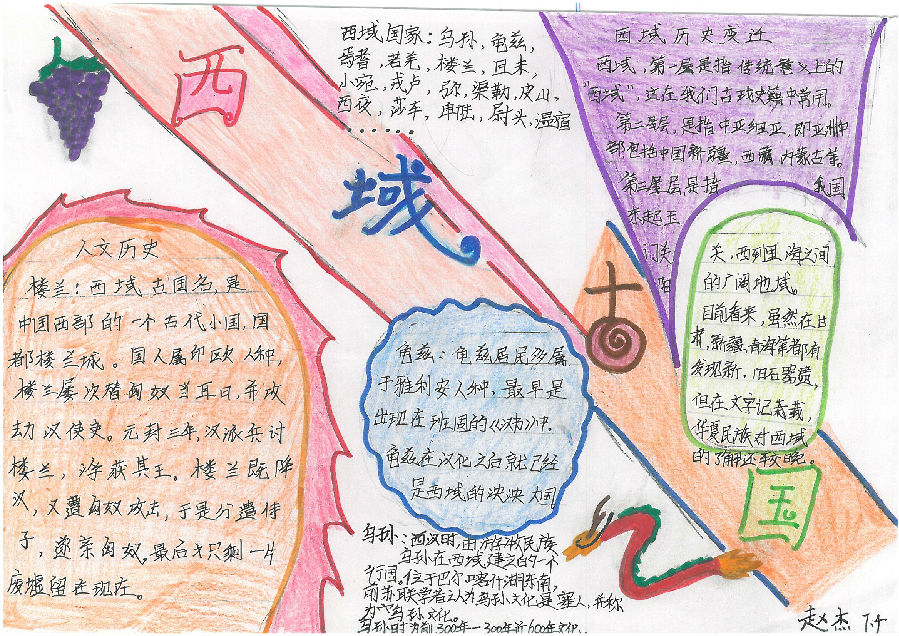 西
域
古
国
西域国家：乌孙，龟兹，
焉耆，若羌，楼兰，且末，
小宛，戎卢，弥，渠勒，皮山，
西夜，莎车，卑陆，尉头，温宿
……
西域历史变迁
西域，第一层是指传统意义上的
"西域"，这在我们古代史籍中常用。
第二层，是指中亚细亚，即亚洲中
部包括中国新疆，西藏，内蒙古等。
第三层是指 我国
东起玉
门关
阳
关，西到里海之间
的广阔地域。
目前看来，虽然在甘
肃，新疆，青海等都有
发现新，旧石器遗，
但在文字记载，
华夏民族对西域
的了解还较晚。
人文历史
楼兰：西域古国名，是
中国西部的一个古代小国，国
都楼兰城。国人属印欧人种，
楼兰屡次替匈奴当耳目，并攻
劫汉使史。元封三年，汉派兵讨
楼兰，俘获其王。楼兰既降
汉，又遭匈奴攻击，于是分遣侍
子，遂亲匈奴。最后才只剩一片
废墟留在现在。
龟兹：龟兹居民多属
于雅利安人种，最早是
出现在班固的《汉书》中.
龟兹在汉化之前就已经
是西域的泱泱大国
乌孙：西汉时，由游牧民族
乌孙在西域建立的一个
行国。位于巴尔喀什湖东南，
前苏联学者认为乌孙文化是塞人，并称
为"乌孙文化。
赵杰